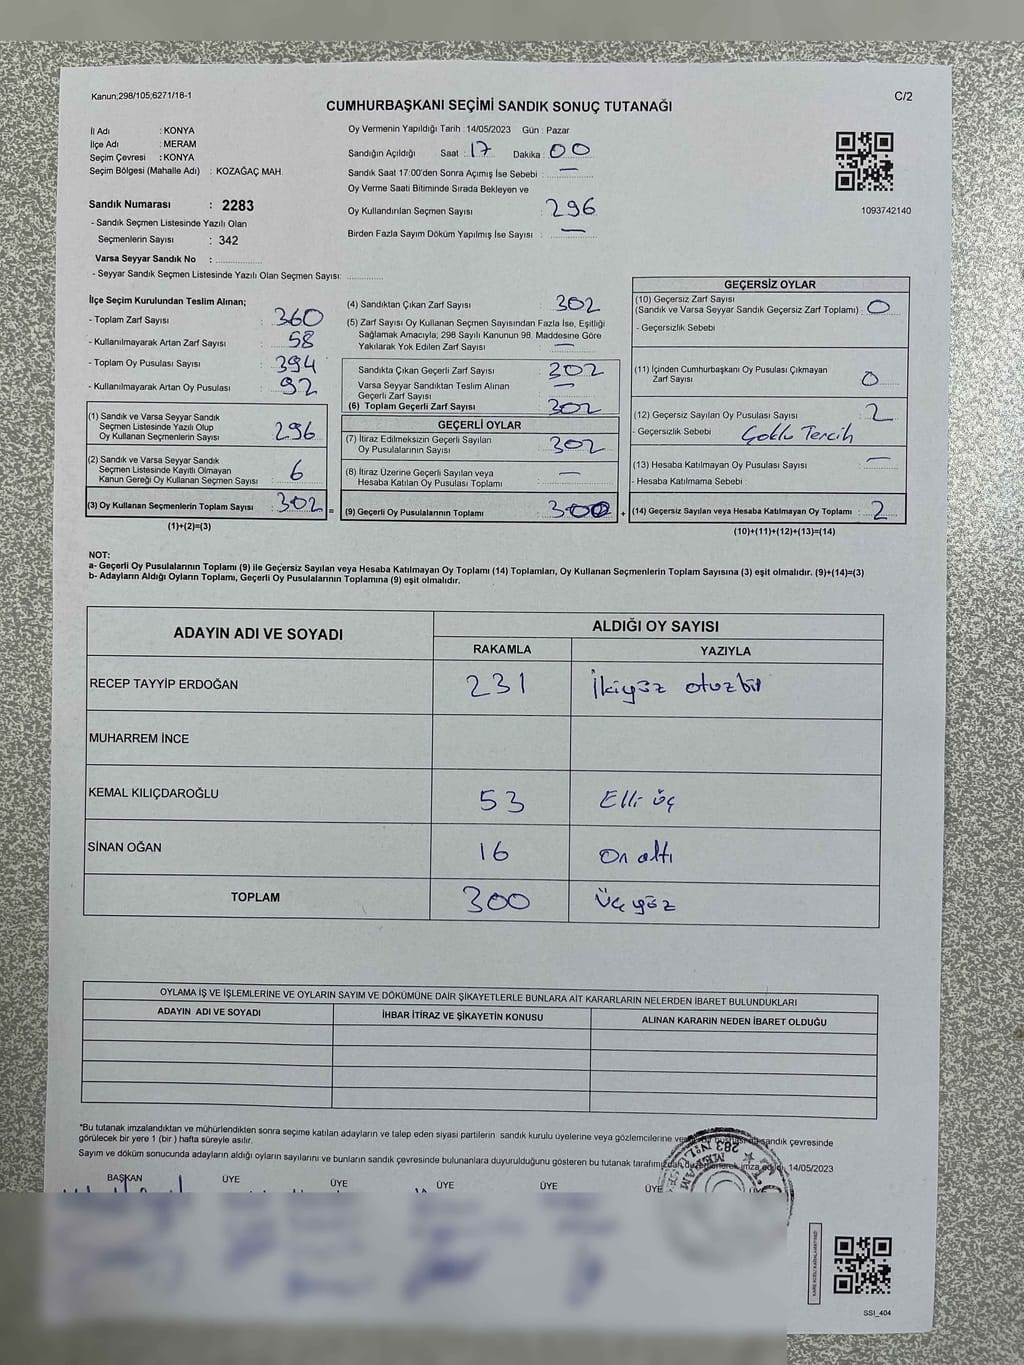 Kanun;298/105;6271/18-1
C/2
CUMHURBAŞKANI SEÇİMİ SANDIK SONUÇ TUTANAĞI
İl Adı : KONYA
İlçe Adı : MERAM
Seçim Çevresi : KONYA
Seçim Bölgesi (Mahalle Adı) : KOZAĞAÇ MAH.
Sandık Numarası : 2283
- Sandık Seçmen Listesinde Yazılı Olan
Seçmenlerin Sayısı : 342
Varsa Seyyar Sandık No :
- Seyyar Sandık Seçmen Listesinde Yazılı Olan Seçmen Sayısı:
Oy Vermenin Yapıldığı Tarih : 14/05/2023 Gün : Pazar
Sandığın Açıldığı Saat : 17 Dakika : 00
Sandık Saat 17:00'den Sonra Açımış İse Sebebi : —
Oy Verme Saati Bitiminde Sırada Bekleyen ve
Oy Kullandırılan Seçmen Sayısı : 296
Birden Fazla Sayım Döküm Yapılmış İse Sayısı : —
1093742140
İlçe Seçim Kurulundan Teslim Alınan;
- Toplam Zarf Sayısı : 360
- Kullanılmayarak Artan Zarf Sayısı : 58
- Toplam Oy Pusulası Sayısı : 394
- Kullanılmayarak Artan Oy Pusulası : 92
(1) Sandık ve Varsa Seyyar Sandık
Seçmen Listesinde Yazılı Olup
Oy Kullanan Seçmenlerin Sayısı : 296
(2) Sandık ve Varsa Seyyar Sandık
Seçmen Listesinde Kayıtlı Olmayan
Kanun Gereği Oy Kullanan Seçmen Sayısı : 6
(3) Oy Kullanan Seçmenlerin Toplam Sayısı : 302 =
(1)+(2)=(3)
(4) Sandıktan Çıkan Zarf Sayısı 302
(5) Zarf Sayısı Oy Kullanan Seçmen Sayısından Fazla İse, Eşitliği
Sağlamak Amacıyla; 298 Sayılı Kanunun 98. Maddesine Göre
Yakılarak Yok Edilen Zarf Sayısı : —
Sandıkta Çıkan Geçerli Zarf Sayısı : 302
Varsa Seyyar Sandıktan Teslim Alınan
Geçerli Zarf Sayısı : —
(6) Toplam Geçerli Zarf Sayısı : 302
GEÇERLİ OYLAR
(7) İtiraz Edilmeksizin Geçerli Sayılan
Oy Pusulalarının Sayısı : 302
(8) İtiraz Üzerine Geçerli Sayılan veya
Hesaba Katılan Oy Pusulası Toplamı : —
(9) Geçerli Oy Pusulalarının Toplamı : 300 +
GEÇERSİZ OYLAR
(10) Geçersiz Zarf Sayısı
(Sandık ve Varsa Seyyar Sandık Geçersiz Zarf Toplamı) : 0
- Geçersizlik Sebebi
(11) İçinden Cumhurbaşkanı Oy Pusulası Çıkmayan
Zarf Sayısı : 0
(12) Geçersiz Sayılan Oy Pusulası Sayısı : 2
- Geçersizlik Sebebi : Çoklu Tercih
(13) Hesaba Katılmayan Oy Pusulası Sayısı : —
- Hesaba Katılmama Sebebi :
(14) Geçersiz Sayılan veya Hesaba Katılmayan Oy Toplamı : 2
(10)+(11)+(12)+(13)=(14)
NOT:
a- Geçerli Oy Pusulalarının Toplamı (9) ile Geçersiz Sayılan veya Hesaba Katılmayan Oy Toplamı (14) Toplamları, Oy Kullanan Seçmenlerin Toplam Sayısına (3) eşit olmalıdır. (9)+(14)=(3)
b- Adayların Aldığı Oyların Toplamı, Geçerli Oy Pusulalarının Toplamına (9) eşit olmalıdır.
ADAYIN ADI VE SOYADI ALDIĞI OY SAYISI
RAKAMLA YAZIYLA
RECEP TAYYİP ERDOĞAN 231 İkiyüz otuzbir
MUHARREM İNCE
KEMAL KILIÇDAROĞLU 53 Elli üç
SİNAN OĞAN 16 On altı
TOPLAM 300 Üç yüz
OYLAMA İŞ VE İŞLEMLERİNE VE OYLARIN SAYIM VE DÖKÜMÜNE DAİR ŞİKAYETLERLE BUNLARA AİT KARARLARIN NELERDEN İBARET BULUNDUKLARI
ADAYIN ADI VE SOYADI İHBAR İTİRAZ VE ŞİKAYETİN KONUSU ALINAN KARARIN NEDEN İBARET OLDUĞU
*Bu tutanak imzalandıktan ve mühürlendikten sonra seçime katılan adayların ve talep eden siyasi partilerin sandık kurulu üyelerine veya gözlemcilerine sandık çevresinde
görülecek bir yere 1 (bir ) hafta süreyle asılır.
Sayım ve döküm sonucunda adayların aldığı oyların sayılarını ve bunların sandık çevresinde bulunanlara duyurulduğunu gösteren bu tutanak tarafımızdan düzenlenerek imza edildi. 14/05/2023
BAŞKAN ÜYE ÜYE ÜYE ÜYE ÜYE ÜYE
T.C.
MERAM
SSI_404